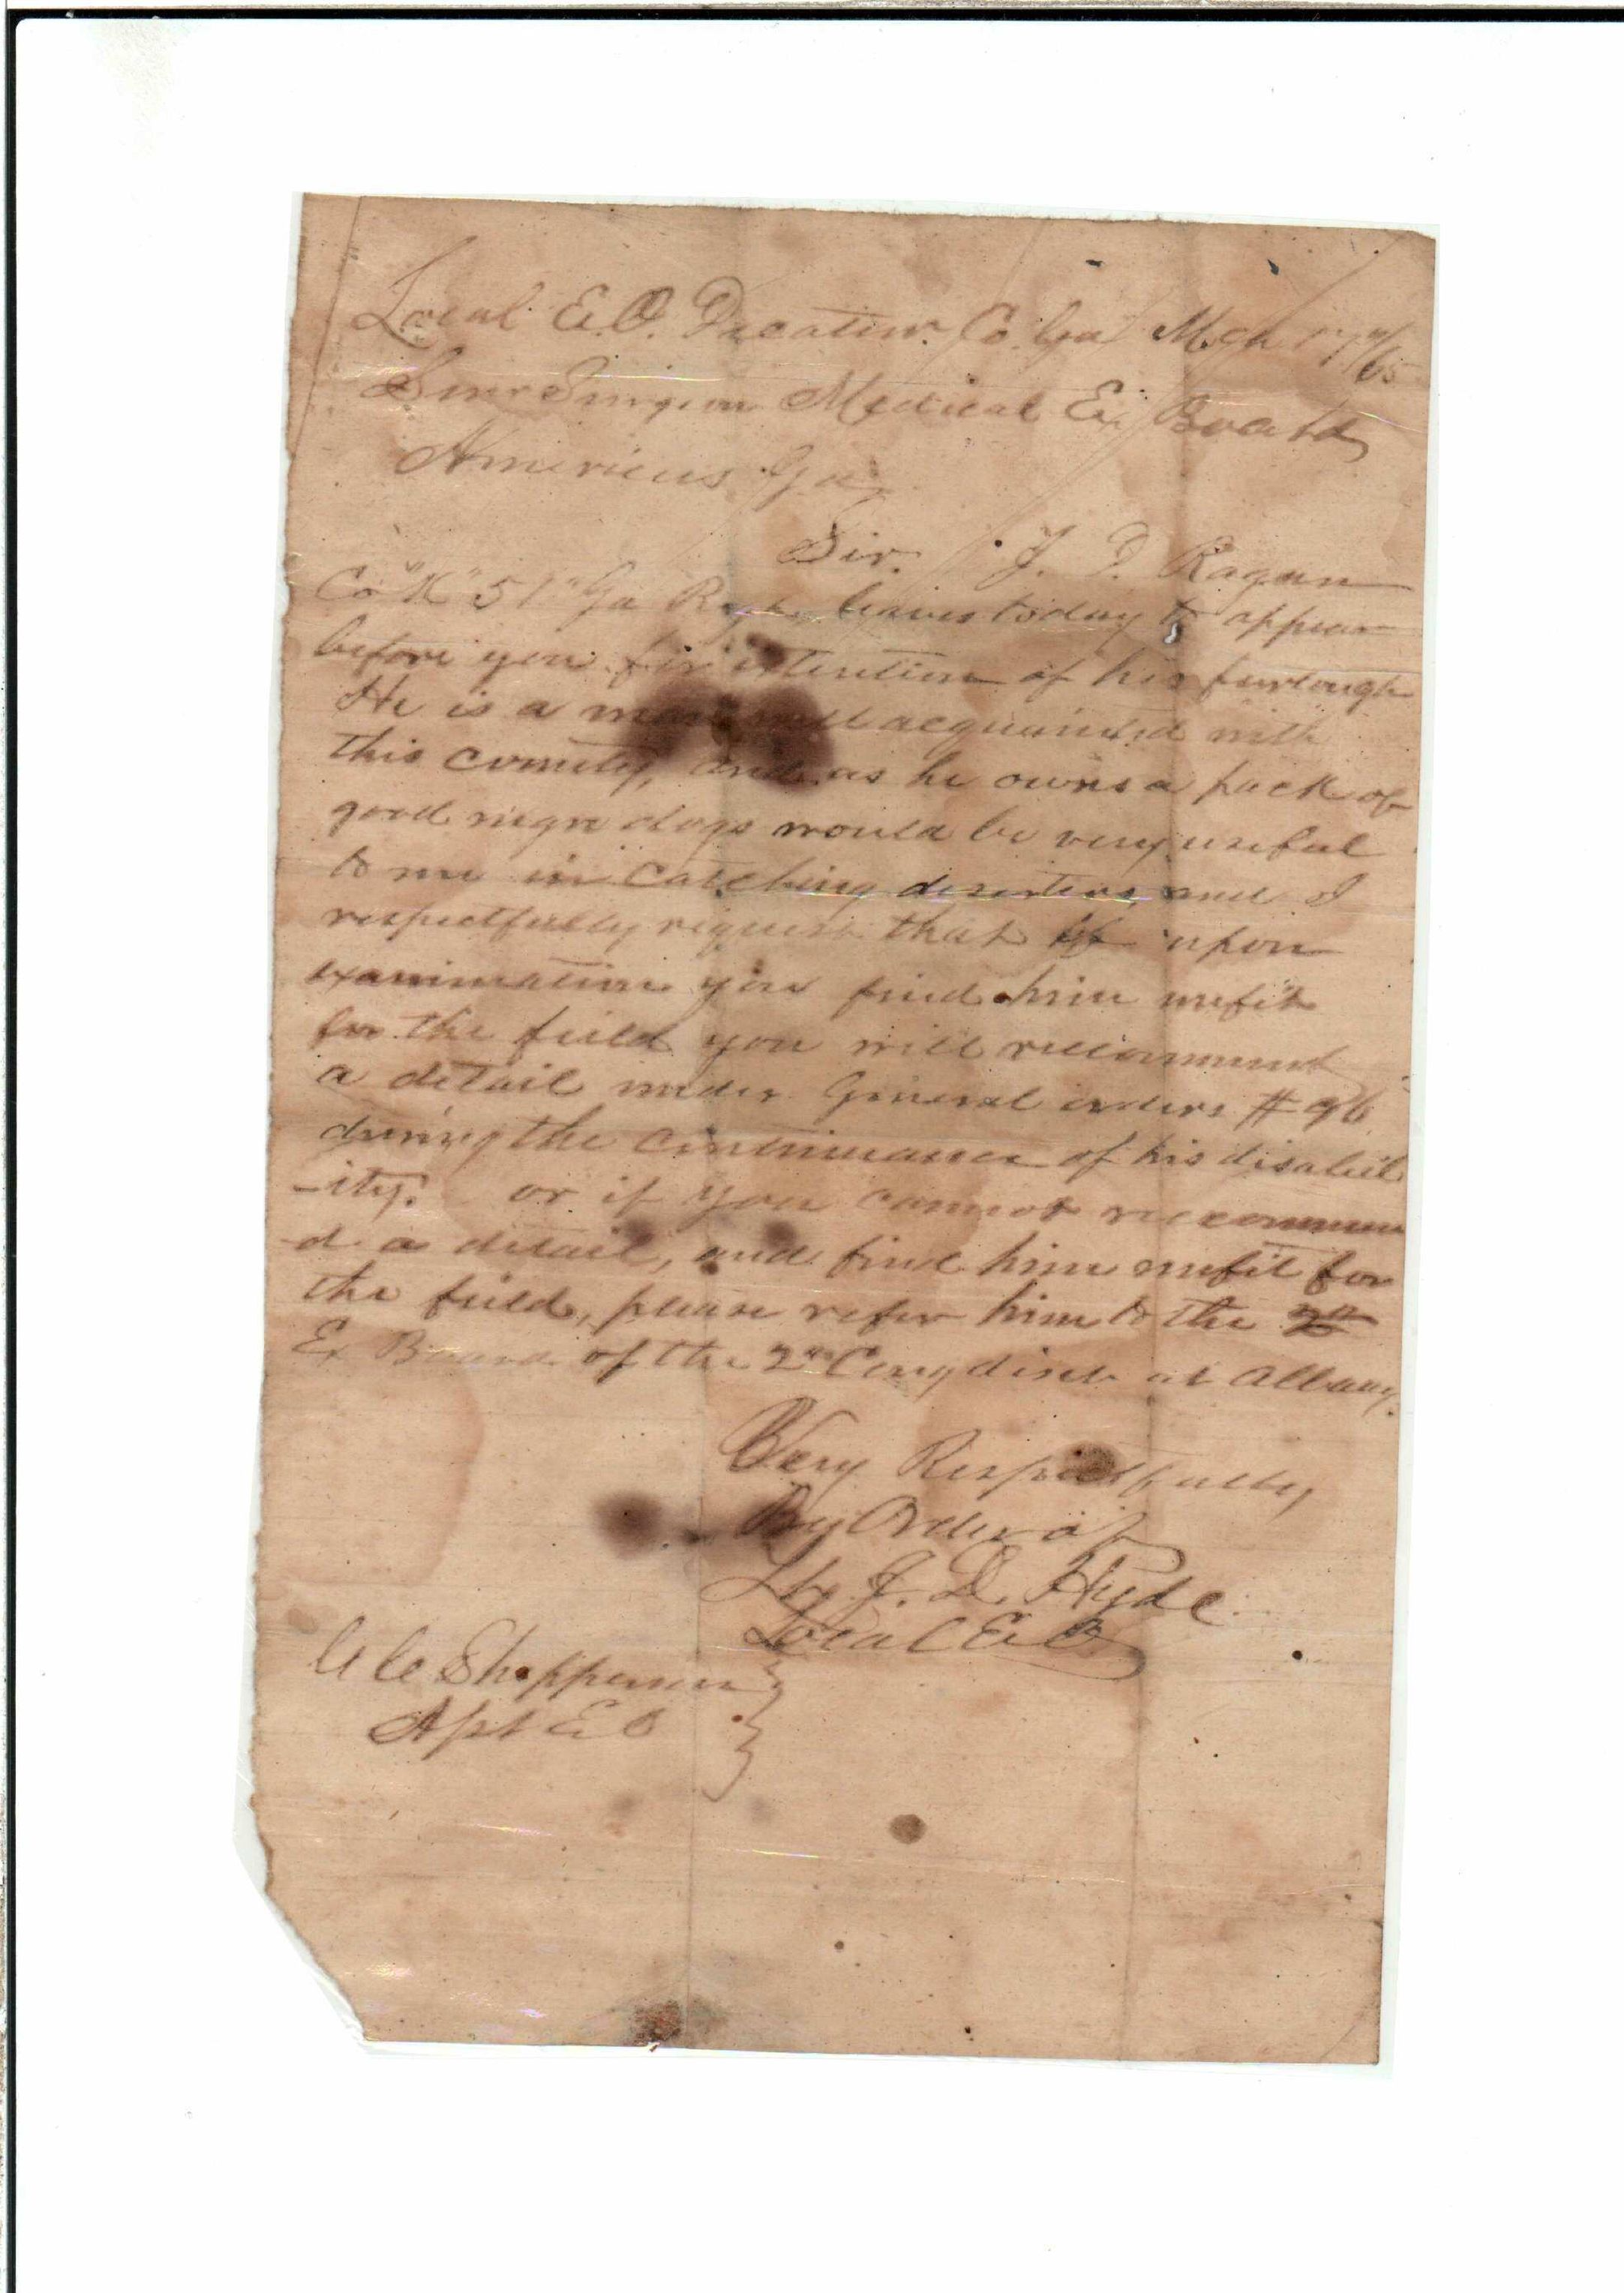 Local E.O. Decatur Co. Ga Mch 17th/65
Senr Surgeon Medical Ex Board
Americus Ga
Sir. J. D. Ragan
Co "K" 51st Ga Regt leaves today to appear
before you for extention of his furlough
He is a man well acquainted with
this county, and as he owns a pack of
good negro dogs would be very useful
to me in catching deserters, and I
respectfully request that if upon
examination you find him unfit
for the field you will reccommend
a detail under General orders # 96
during the continuance of his disabil
-ity. or if you cannot reccommen
-d a detail, and find him unfit for
the field, please refer him to the
Ex Board of the 2nd Cong distr at Albany.
Very Respectfully
By Order of
Lt J. D. Hyde
Local E O
Shepperson
E O